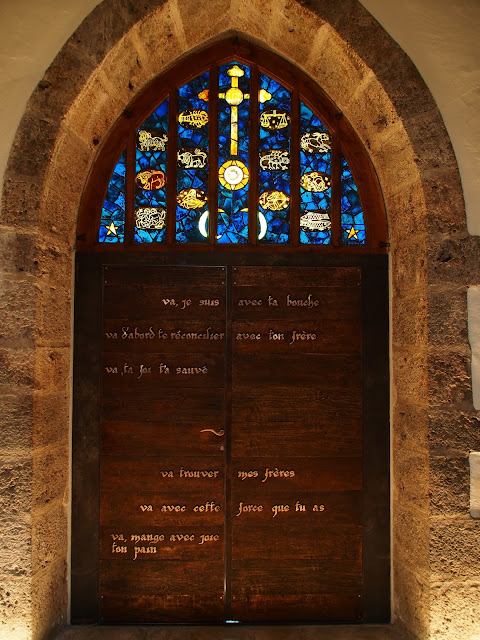 va, je suis avec ta bouche
va d'abord te réconcilier avec ton frère
va, ta foi t'a sauvé
va trouver mes frères
va avec cette force que tu as
va, mange avec joie
ton pain